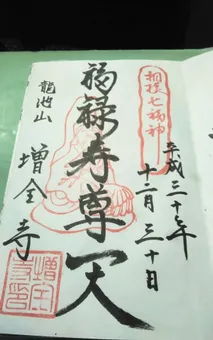 相模七福神
平成三十年
十二月三十日
福禄寿尊天
龍池山
増全寺